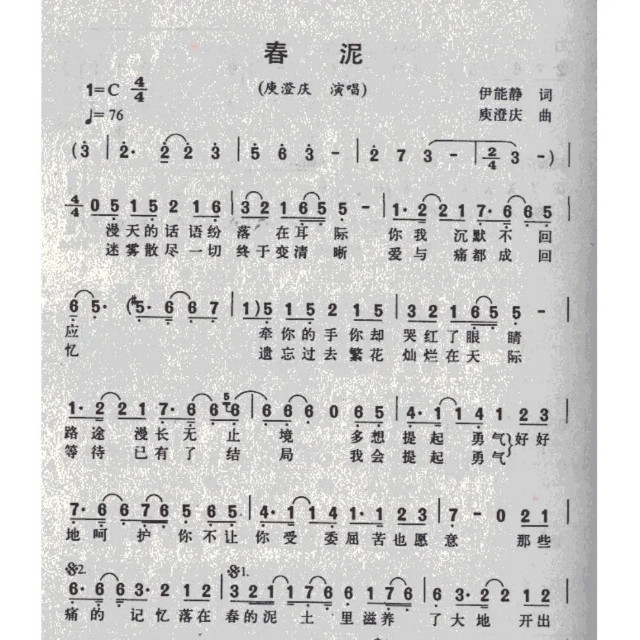 春泥
(庾澄庆 演唱)
1=C 4/4
伊能静 词
♩=76
庾澄庆 曲
(3 | 2· 2 2 3 | 5 6 3 - | 2 7 3 - | 2/4 3 -) |
4/4 0 5 1 5 2 1 6 | 3 2 1 6 5 5 - | 1· 2 2 1 7· 6 6 5 |
漫天的话语纷 落在耳际 你我沉默不回
迷雾散尽一切 终于变清晰 爱与痛都成回
6 5· (#5· 6 6 7 | 1) 5 1 5 2 1 5 | 3 2 1 6 5 5 - |
应 牵你的手你却 哭红了眼睛
忆 遗忘过去繁花 灿烂在天际
1· 2 2 1 7· 6 5 6 6 | 6 6 6 0 6 5 | 4· 1 1 4 1 2 3 |
路途漫长无止 境 多想 提起勇气 好好
等待已有了结 局 我会 提起勇气
7· 6 6 7 6 5 6 5 | 4· 1 1 4· 1 2 3 | 7 - 0 2 1 |
地呵护你不让 你受委屈苦也愿 意 那些
𝄋2. 𝄋1.
6· 6 6 3· 2 1 2 | 3 2 1 7 1 7 6 6 5 | 6 3· 2 2 1 2 |
痛的记忆落在 春的泥土里滋养 了大地开出